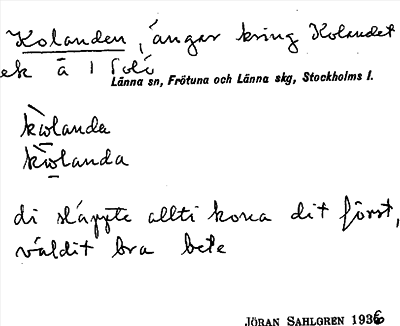 Kolanden, ängar kring Kolandet
ek å 1
Länna sn, Frötuna och Länna skg, Stockholms l.
kωlanda
kωlanda
di släppte allti kona dit först,
väldit bra bete
JÖRAN SAHLGREN 1936